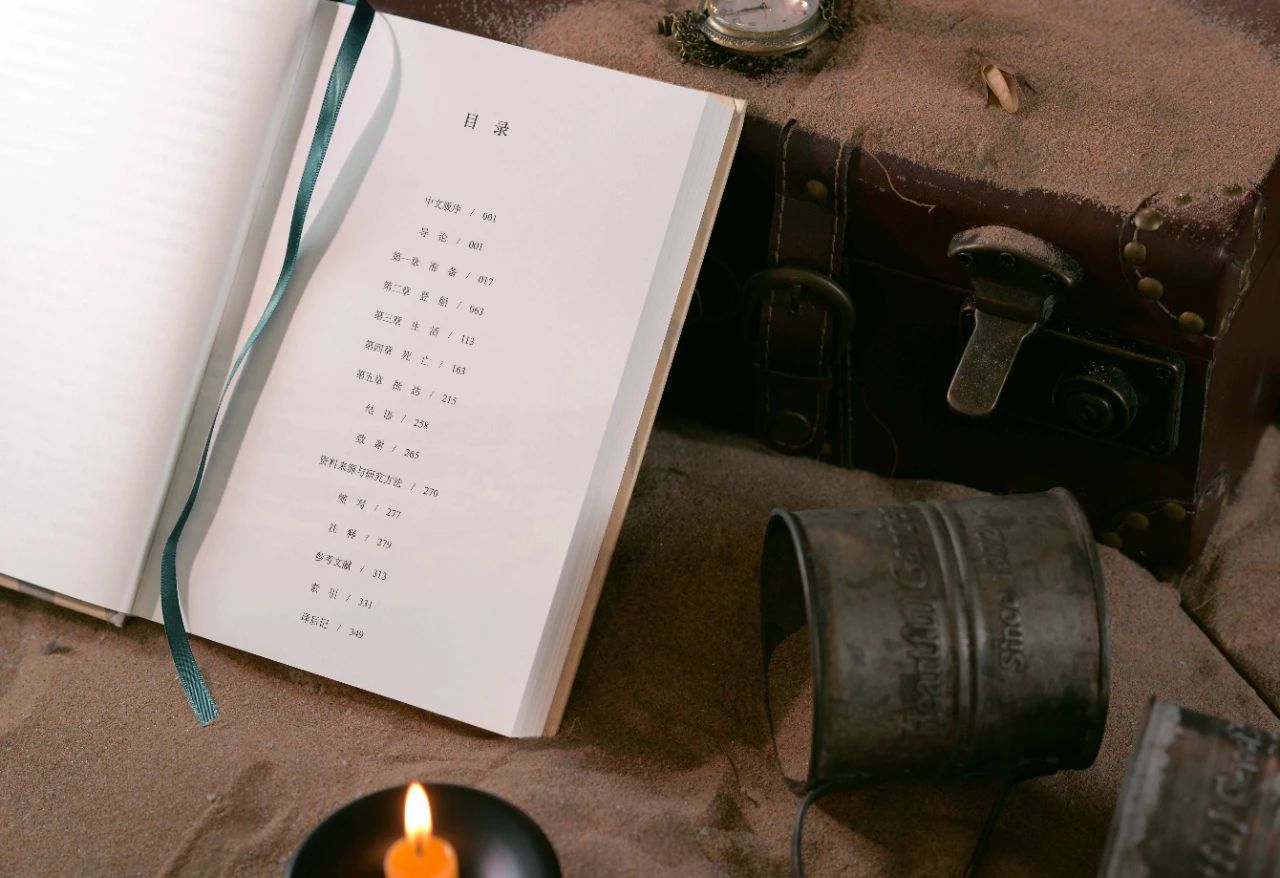 目 录
中文版序 / 001
导 论 / 001
第一章 准 备 / 017
第二章 登 船 / 063
第三章 生 活 / 113
第四章 死 亡 / 163
第五章 抵 达 / 215
结 语 / 258
致 谢 / 265
资料来源与研究方法 / 270
缩 写 / 277
注 释 / 279
参考文献 / 313
索 引 / 331
译后记 / 349
Since